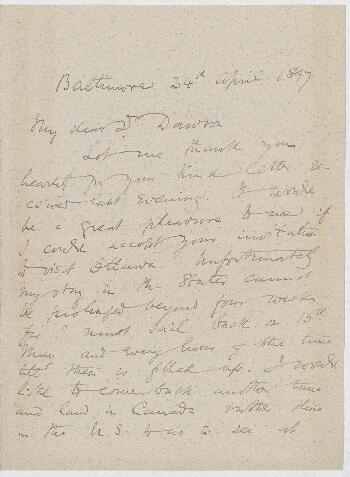 Baltimore 24th April 1897
My dear Dr Dawson
Let me thank you
heartily for your kind letter re-
ceived last evening. It would
be a great pleasure to me if
I could accept your invitation
to visit Ottawa. Unfortunately
my stay in the States cannot
be prolonged beyond four weeks
for I must sail back on 15th
May and every hour of the time
till then is filled up. I would
like to come back another time
and land in Canada rather than
in the U.S. so as to see at